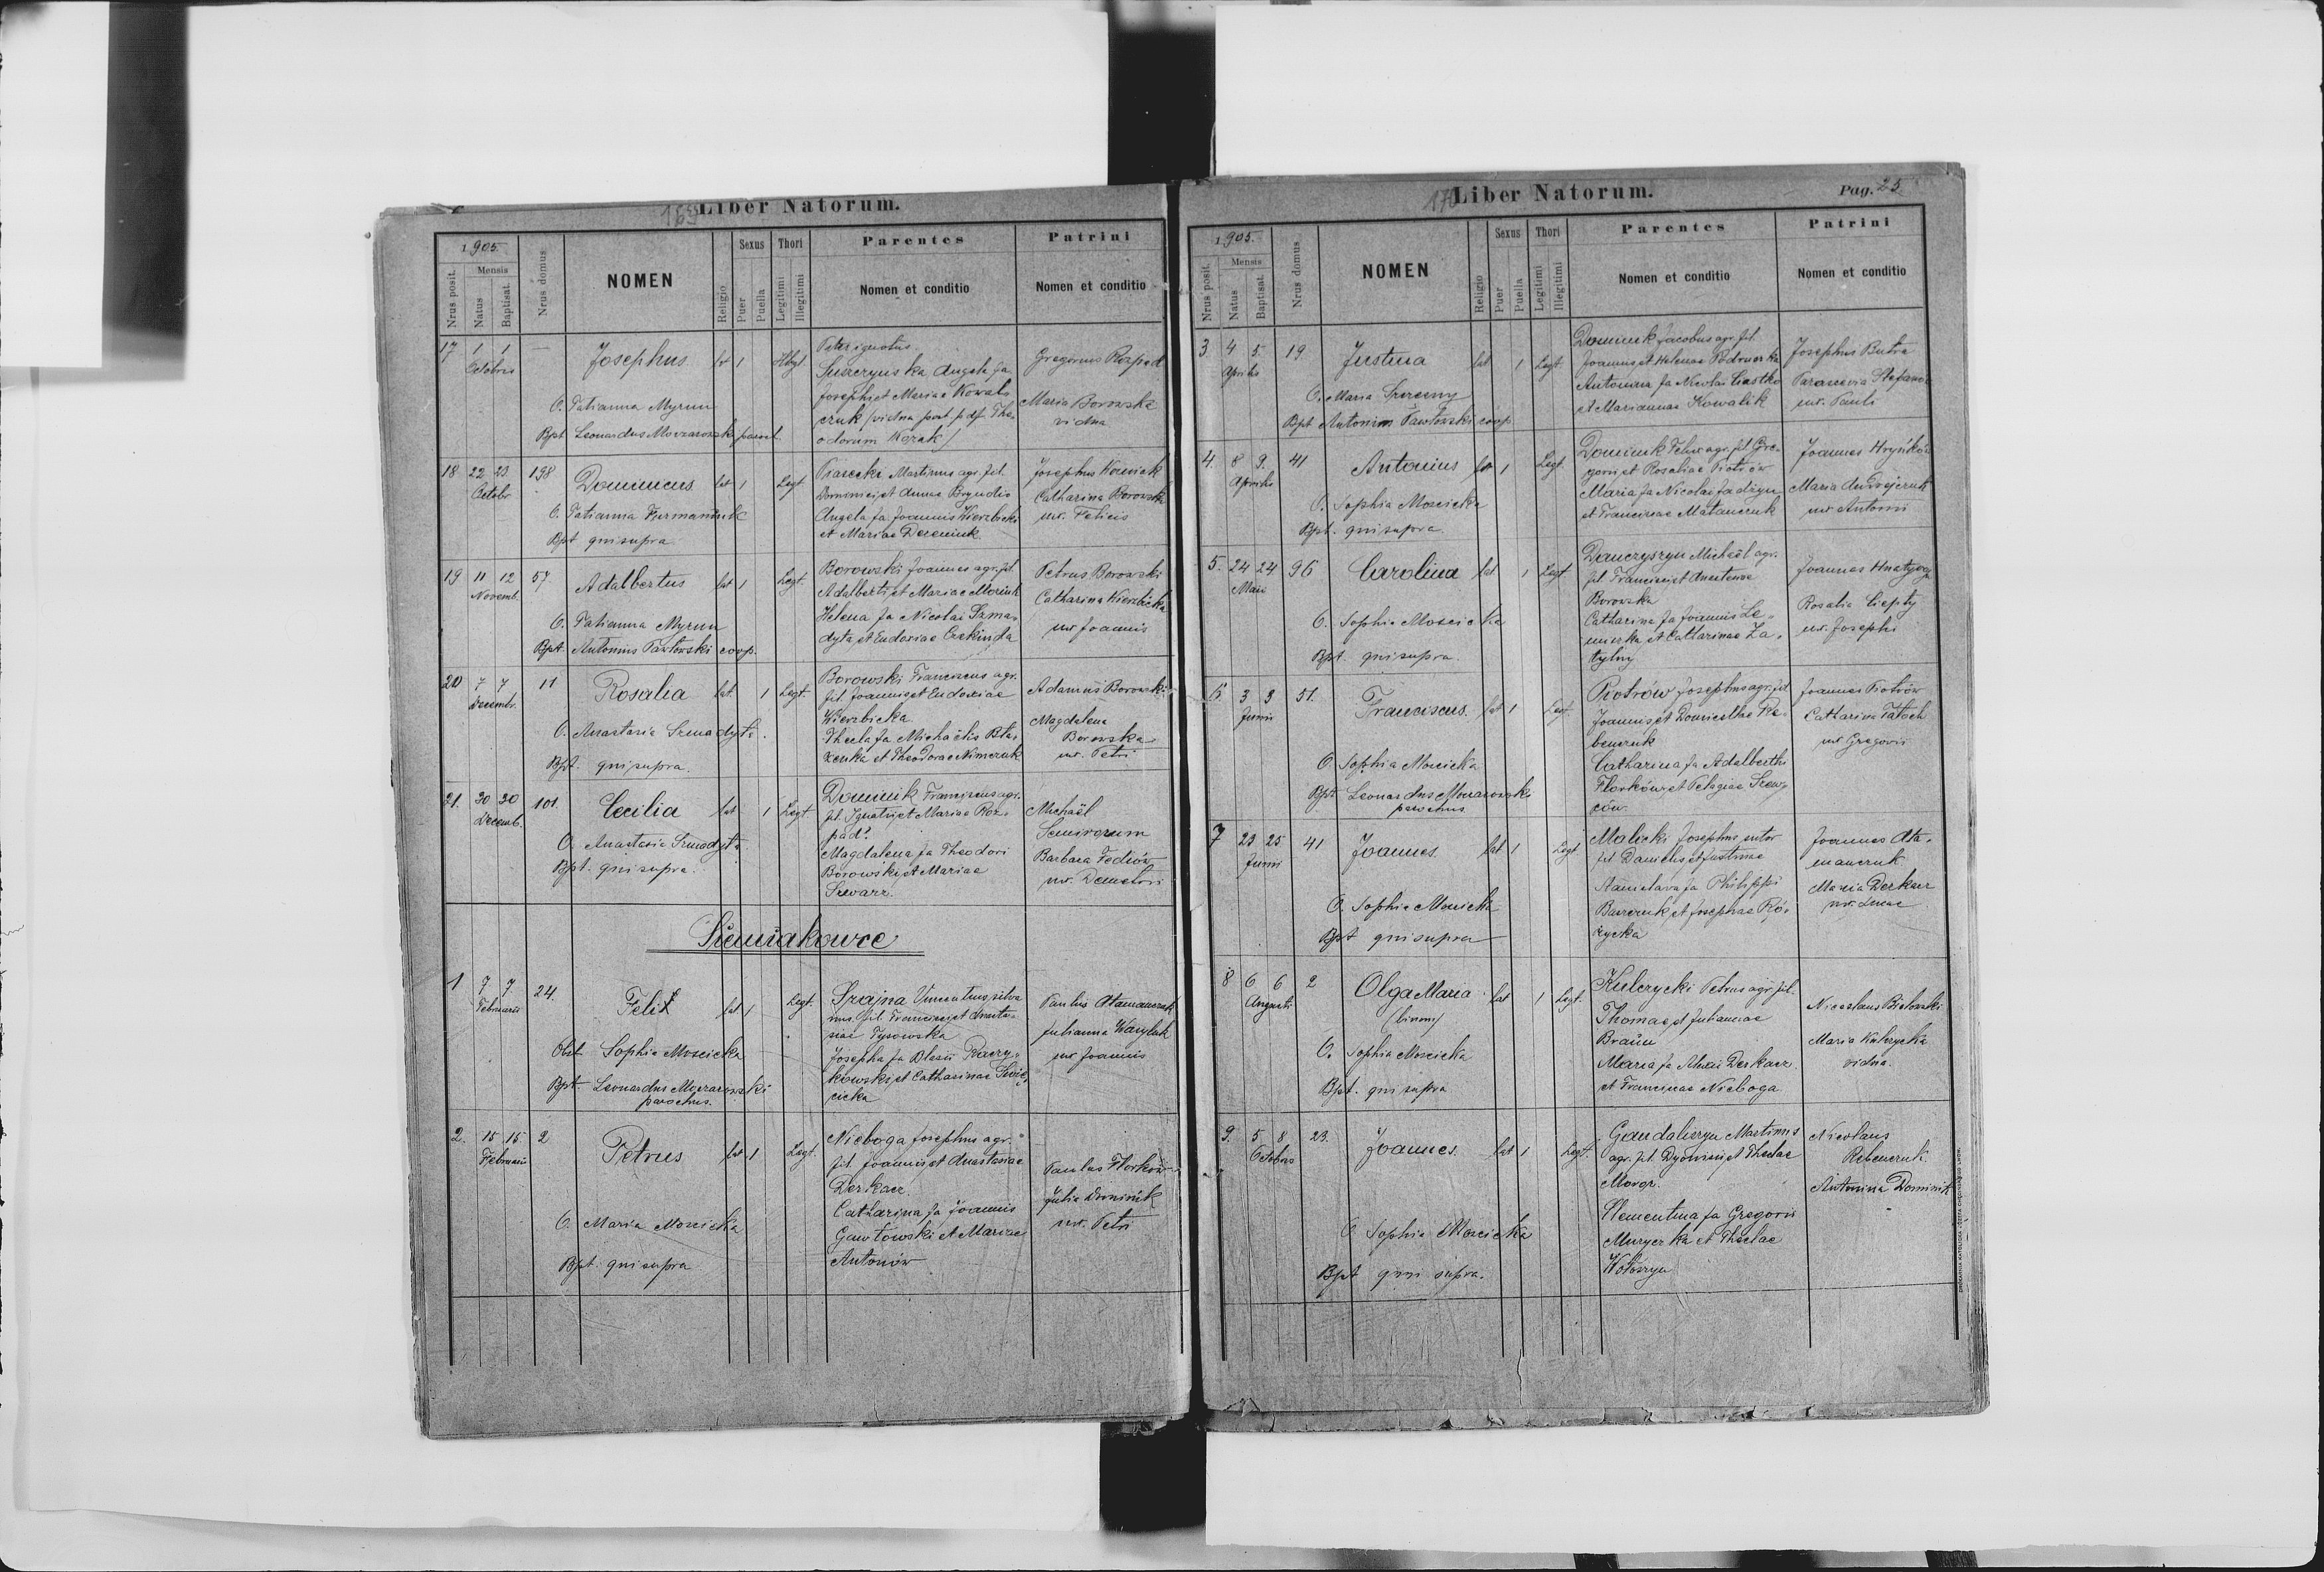 Liber Natorum.
1905.
Nrus posit.
Mensis
Natus
Baptisat.
Nrus domus
NOMEN
Religio
Sexus
Puer
Puella
Thori
Legitimi
Illegitimi
Parentes
Nomen et conditio
Patrini
Nomen et conditio
17 1 1 — Josephus 1
Octobris
Pater ignotus.
Josephi et Mariae Kowal
odorum
Maria Borowska
vidua
O. Tatianna Myrun
Bpt Leonardus
18 22 23 198 Dominicus lat 1 Legt
Octobr
Martinus agr. fil.
Dominici et Annae
Angela fa Joannis Wierzbicki
et Mariae
Josephus
Catharina Borowska
ux. Felicis
O. Tatianna Furmaniuk
Bpt qui supra
19 11 12 57. Adalbertus lat 1 Legt.
Novemb.
Borowski Joannes agr. fil
Adalberti et Mariae
Helena fa Nicolai Szma-
dyta et Eudoxiae
Petrus Borowski
Catharina Wierzbicka
ux Joannis
O. Tatianna Myrun
Bpt. Antonius Pawłowski coop.
20 7 7 11 Rosalia lat. 1 Legt.
Decembr.
Borowski Franciscus agr.
fil. Joannis et Eudoxiae
Wierzbicka
Thecla fa Michaëlis
et Theodorae Nimczuk
Adamus Borowski
Magdalena
Borowska
ux. Petri
O. Anastasia Szmadyta.
Bpt. qui supra.
21. 30 30 101. Cecilia lat 1 Legt
Decemb.
Dominik Franciscus agr.
fil. Ignatii et Mariae Roz-
pad.
Magdalena fa Theodori
Borowski et Mariae
Szwarz.
Michaël
Barbara Fedków
ux. Demetri
O. Anastasia Szmadyta
Bpt. qui supra.
Siemiakowce
1 7 7 24. Felix lat. 1 Legt.
Februarii
Szajna Vincentius silva
nus. fil. Francisci et Anasta-
siae Tysowska
Josepha fa Blasii Raczy-
kowski et Catharinae
cicka
Paulus Atamanczuk
Julianna Wasyluk
ux Joannis
Obst. Sophia Moscicka
Bpt. Leonardus
parochus.
2. 15 15 2 Petrus lat. 1 Legt.
Februarii
Nieboga Josephus agr.
fil. Joannis et Anastasiae
Derkacz.
Catharina fa Joannis
Gawłowski et Mariae
Antoniów
Paulus Florków
Julia Dominik
ux. Petri
O. Maria Moscicka
Bpt. qui supra
Liber Natorum.
Pag. 25
1905.
Nrus posit.
Mensis
Natus
Baptisat.
Nrus domus
NOMEN
Religio
Sexus
Puer
Puella
Thori
Legitimi
Illegitimi
Parentes
Nomen et conditio
Patrini
Nomen et conditio
3 4 5. 19 Justina lat 1 Legt.
Aprilis
Dominik Jacobus agr. fil.
Joannis et Helenae
Antonina fa Nicolai Ciastko
et Mariannae Kowalik
Josephus Butra
Parascevia
ux. Pauli
O. Maria
Bpt Antonius Pawłowski coop
4. 8 9. 41 Antonius lat 1 Legt.
Aprilis
Dominik Felix agr. fil Gre-
gorii et Rosaliae Piotrów
Maria fa Nicolai
et Franciscae
Joannes Hryńków
Maria Andrejczuk
ux Antonii
O. Sophia Moscicka
Bpt. qui supra
5. 24 24 96 Carolina lat 1 Legt.
Maii
Danczyszyn Michaël agr.
fil Francisci et Anastasiae
Borowska
Catharina fa Joannis Le-
et Catharinae Za-
tylny
Joannes
Rosalia Ciepły
ux. Josephi
O. Sophia Moscicka
Bpt. qui supra.
6 3 3 51. Franciscus. lat 1 Legt.
Junii
Piotrów Josephus agr. fil
Joannis et Domicellae Re-
benczuk
Catharina fa Adalberthi
Florków et Pelagiae Szew-
ców.
Joannes Piotrów
Catharina
ux. Gregorii
O Sophia Moscicka
Bpt. Leonardus
parochus
7 23 25 41 Joannes. lat 1 Legt
Junii
Malicki Josephus sutor
fil. Danielis et Justinae
Stanislava fa Philippi
et Josephae Ró-
życka
Joannes Ata-
manczuk
Maria Derkacz
ux. Lucae
O. Sophia Moscicka
Bpt qui supra
8 6 6 2 Olga Maria lat 1 Legt.
Augusti
(binom)
Kulczycki Petrus agr. fil.
Thomae et Juliannae
Braün
Maria fa Alexii Derkacz
et Franciscae Nieboga
Nicolaus
Maria Kulczycka
vidua.
O. Sophia Moscicka
Bpt. qui supra
9. 5 8 23. Joannes. lat 1 Legt.
Octobris
Martinus
agr. fil. Dyonisii et Theclae
Clementina fa Gregorii
et Theclae
Wołoszyn
Nicolaus
Rebenczuk.
Antonina Dominik
O. Sophia Moscicka
Bpt qui supra.